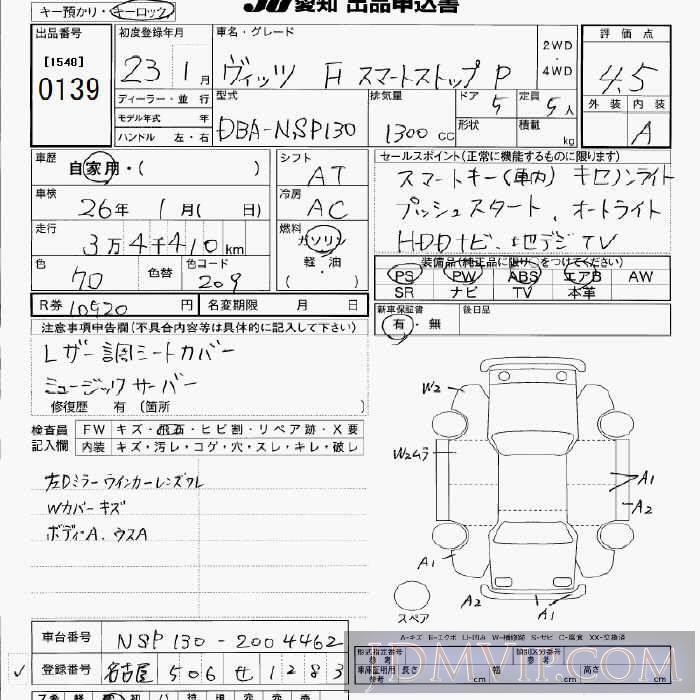 キー預かり・キーロック
JU愛知 出品申込書
出品番号
[1540]
0139
初度登録年月
23 1月
車名・グレード
ヴィッツ F スマートストップ P
2WD
・
4WD
評価点
4.5
外装 内装
A
ディーラー・並行
モデル年式 年
ハンドル 左・右
型式
DBA-NSP130
排気量
1300 cc
ドア 5
定員 5人
形状
積載 kg
車歴
自家用・( )
車検
26年 1月( 日)
走行
3万4千410km
色
色替
色コード
209
シフト
AT
冷房
AC
燃料
ガソリン
軽・油
( )
セールスポイント(正常に機能するものに限ります)
スマートキー(車内) キセノンライト
プッシュスタート、オートライト
HDDナビ・地デジTV
装備品(純正品に限り○をつけてください)
PS PW ABS エアB AW
SR ナビ TV 本革
R券 10920 円
名変期限 月 日
新車保証書
有・無
後日品
注意事項申告欄(不具合内容等は具体的に記入して下さい)
レザー調シートカバー
ミュージックサーバー
修復歴 有(箇所 )
検査員
記入欄
FW キズ・飛石・ヒビ割・リペア跡・X要
内装 キズ・汚レ・コゲ・穴・スレ・キレ・破レ
左Dミラーウインカーレンズワレ
Wカバーキズ
ボディA、ウスA
W2
W2ムラ
A1
A2
A1
A2
A1
スペア
車台番号
NSP130-2004462
登録番号
名古屋 506 せ 1283
型式指定番号
参考
類別区分番号
参考
車庫証明用
参考
長さ
幅
高さ
JDMVIP.COM